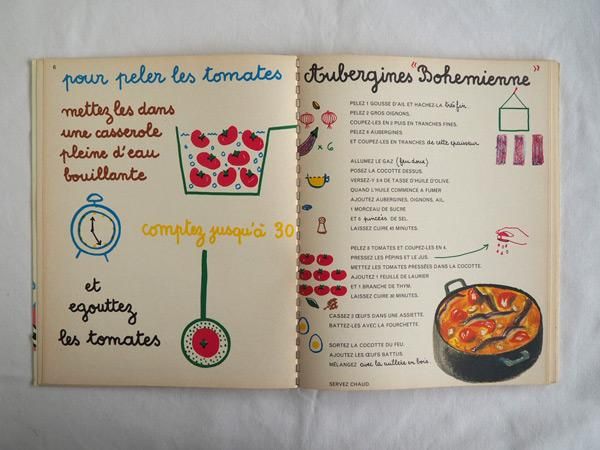 6
pour peler les tomates
mettez les dans
une casserole
pleine d'eau
bouillante
comptez jusqu'à 30
et
egouttez
les tomates
Aubergines "Bohemienne"
PELEZ 1 GOUSSE D'AIL ET HACHEZ-LA très fin.
PELEZ 2 GROS OIGNONS,
COUPEZ-LES EN 2 PUIS EN TRANCHES FINES.
x 6
PELEZ 6 AUBERGINES
ET COUPEZ-LES EN TRANCHES de cette épaisseur
ALLUMEZ LE GAZ (feu doux)
POSEZ LA COCOTTE DESSUS.
VERSEZ-Y 3/4 DE TASSE D'HUILE D'OLIVE.
QUAND L'HUILE COMMENCE A FUMER
AJOUTEZ AUBERGINES, OIGNONS, AIL,
1 MORCEAU DE SUCRE
ET 6 pincées DE SEL.
LAISSEZ CUIRE 45 MINUTES.
PELEZ 8 TOMATES ET COUPEZ-LES EN 4.
PRESSEZ LES PÉPINS ET LE JUS.
METTEZ LES TOMATES PRESSÉES DANS LA COCOTTE.
AJOUTEZ 1 FEUILLE DE LAURIER
ET 1 BRANCHE DE THYM.
LAISSEZ CUIRE 30 MINUTES.
CASSEZ 2 ŒUFS DANS UNE ASSIETTE.
BATTEZ-LES AVEC LA FOURCHETTE.
SORTEZ LA COCOTTE DU FEU.
AJOUTEZ LES ŒUFS BATTUS.
MÉLANGEZ avec la cuillère en bois.
SERVEZ CHAUD.